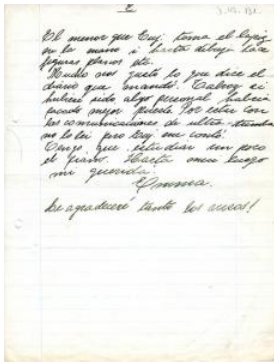 El menor que Luj. toma el lapiz
en la mano i hasta dibuja hace
figuras planos etc.
Mucho nos gustó lo que dice el
diario que mandó. Talvez si
hubiera sido algo personal habría
sido mejor
las comunicaciones de ultra tumba
no lo lei pero Luj me contó.
Tengo que estudiar un poco
el piano. Hasta muy luego
mi querida.
Emma.
Le agradeceré tanto los avisos!